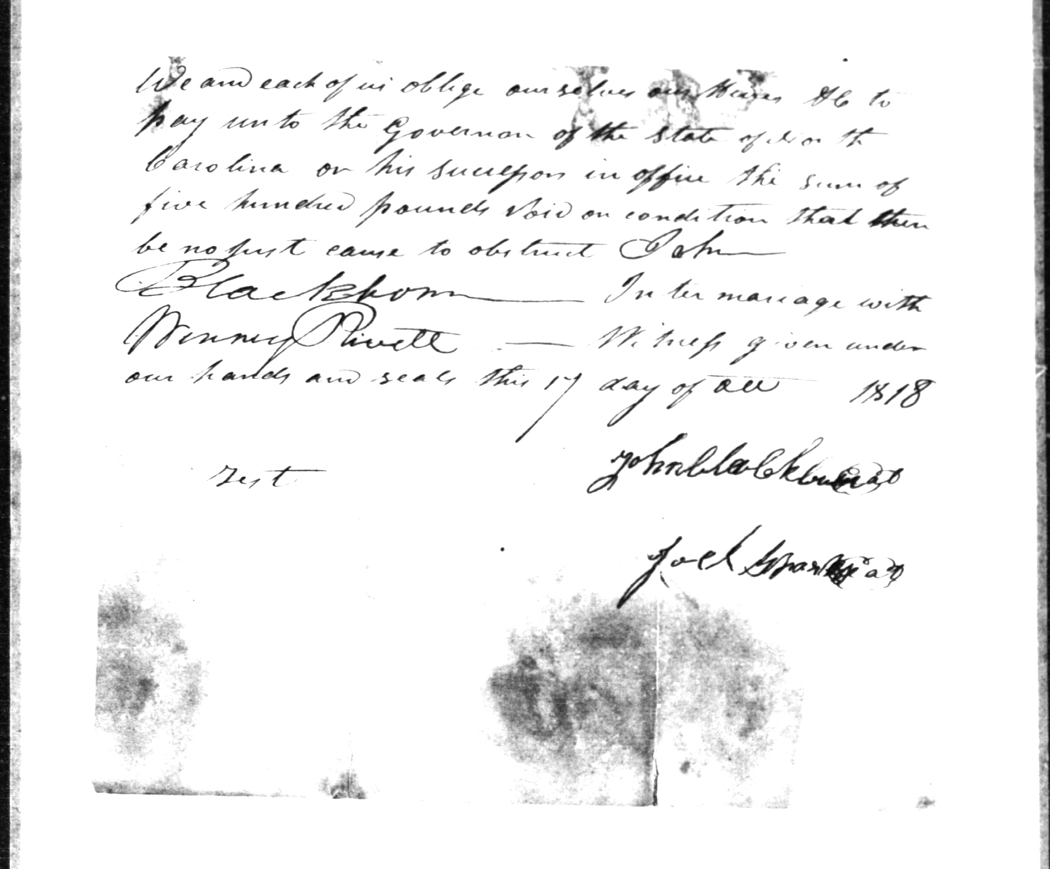 We and each of us oblige ourselves our Heires &C to
pay unto the Governor of the State of North
Carolina or his successors in office the sum of
five hundred pounds Void on condition that there
be no just cause to obstruct John
Blackborn Inter mariage with
Winney Rivett Witness given under
our hands and seals this 17 day of 1818
Test
John Blackburn
Joel Sparks